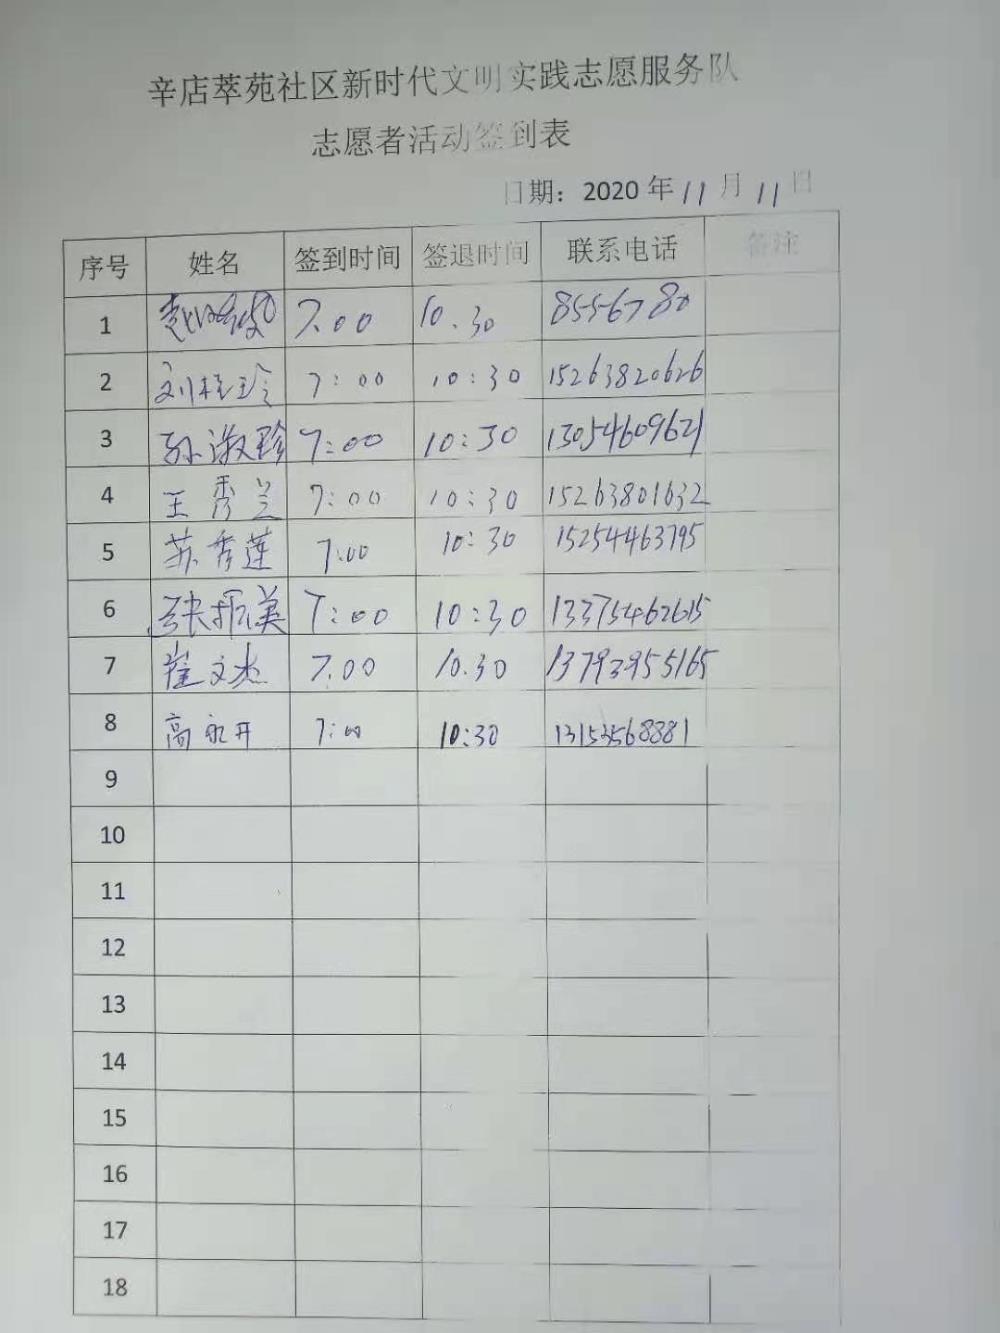 辛店萃苑社区新时代文明实践志愿服务队
志愿者活动签到表
日期：2020 年 11 月 11 日
序号 姓名 签到时间 签退时间 联系电话 备注
1 赵 7.00 10.30 8556780
2 刘桂珍 7:00 10:30 15263820626
3 孙淑珍 7:00 10:30 13054609621
4 王秀兰 7:00 10:30 15263801632
5 苏秀莲 7:00 10:30 15254463795
6 张振美 7:00 10:30 13375462615
7 崔文杰 7.00 10.30 13793955165
8 高永开 7:00 10:30 13153568881
9
10
11
12
13
14
15
16
17
18